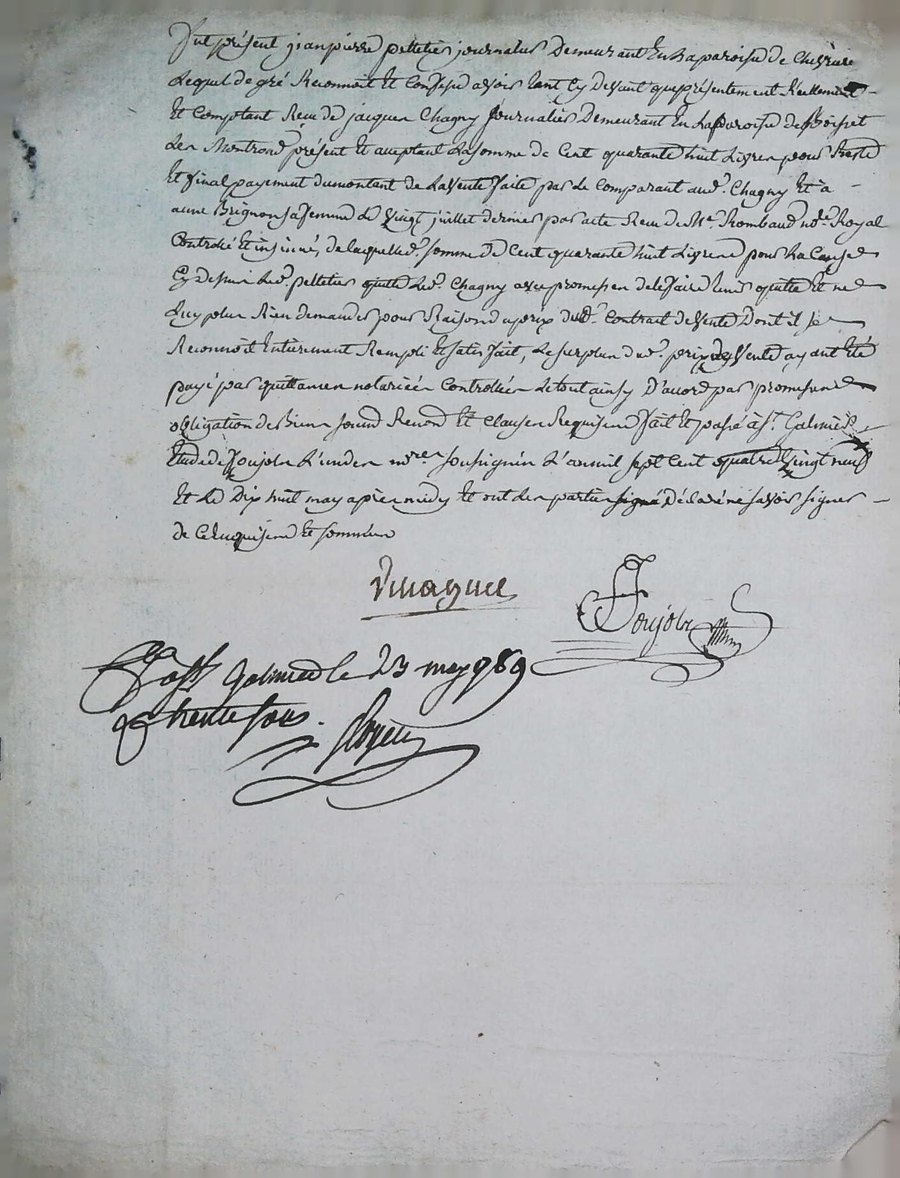 Fut présent jeanpierre pelletier journalier Demeurant En La paroisse de Chevriere
Lequel de gré Reconnoit Et Confesse avoir tant Cy Devant que présentement Réellement
Et Comptant Reçu de jacques Chagny Journalier Demeurant En La Paroisse de Boisset
Les Montrond présent Et acceptant La Somme de Cent quarante huit Livres pour Reste
Et final payement du montant de La Vente faite par Le Comparant aud. Chagny Et à
anne Brignon sa femme Le Vingt juillet dernier par acte Reçu de Me. Rombaud nore. Royal
Controllé Et insinué, de laquelle d. somme de Cent quarante huit Livres pour La Cause
Cy dessus Led. pelletier quitte Led. Chagny avec promesse de le faire tenir quitte Et ne
Luy plus Rien demander pour Raison du prix dud. Contrat de Vente Dont il se
Reconnoit Entierement Rempli Et Satisfait, Le surplus dud. prix de Vente ayant Eté
payé par quittances notariées Controllées Le tout ainsy D'accord par promesses
obligation de Biens soumd Renond Et Clauses Requises fait Et passé à St. Galmier
Etude de Poujols L'un des nores. soussignés L'an mil sept Cent quatre Vingt neuf
Et Le Dix huit may après midy Et ont Les parties signé Déclaré ne savoir signer
de Ce Enquises Et sommées
Poujols
a St. Galmier le 23 may 1789
trente sous.